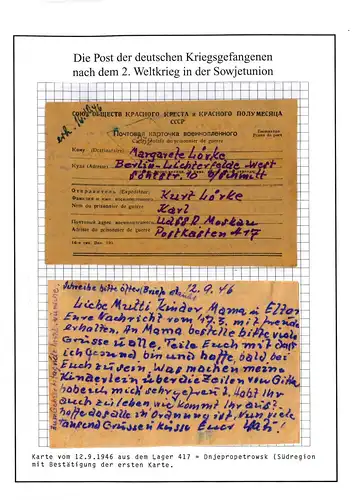 Die Post der deutschen Kriegsgefangenen
nach dem 2. Weltkrieg in der Sowjetunion
СОЮЗ ОБЩЕСТВ КРАСНОГО КРЕСТА и КРАСНОГО ПОЛУМЕСЯЦА
СССР
Почтовая карточка военнопленного
Carte postale du prisonnier de guerre
Бесплатно
Franc de port
Кому (Destinataire) Margarete Lörke
Куда (Adresse) Berlin-Lichterfelde-West
b/Schmitt
Отправитель (Expéditeur)
Фамилия и имя военнопленного Kurt Lörke
Nom du prisonnier de guerre Karl
Почтовый адрес военнопленного UdSSR Moskau
Adresse du prisonnier de guerre Postkasten 417
Schreibe bitte öfter, Brief
12.9.46
Liebe Mutti Kinder Mama u Eltern
Eure Nachricht vom mit Freude
erhalten. An Mama bestelle bitte viele
Grüsse u alle. Teile Euch mit das
ich gesund bin und hoffe, bald bei
Euch zu sein. Was machen meine
Kinderlein über die Zeilen von Gitta
hab ich mich sehr gefreut? Habt Ihr
auch zu leben wie kommt Ihr aus?
hoffe das alle in Ordnung ist. Nun viele
tausend Grüsse u Küsse Euer Vati!
Karte vom 12.9.1946 aus dem Lager 417 = Dnjepropetrowsk (Südregion
mit Bestätigung der ersten Karte.